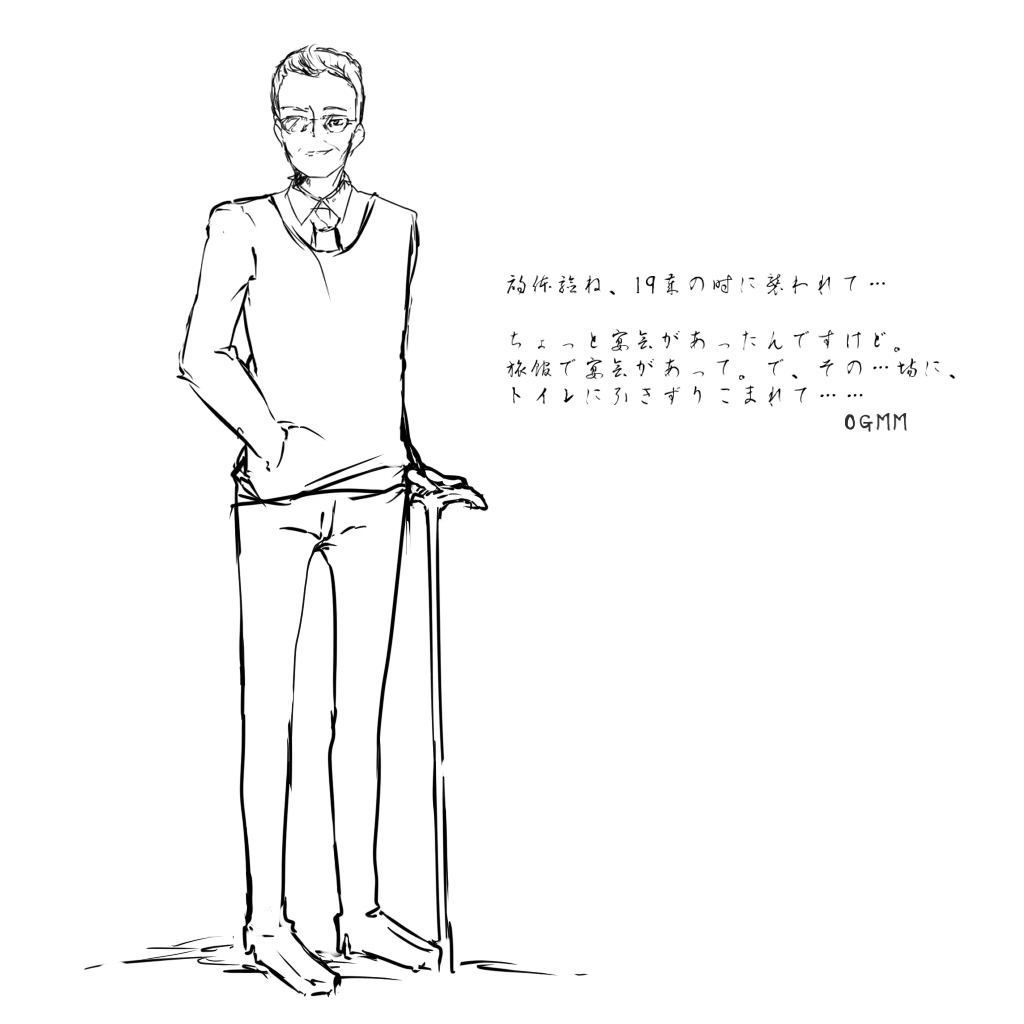 初体験ね、19歳の時に襲われて…
ちょっと宴会があったんですけど。
旅館で宴会があって。で、その…場に、
トイレに引きずりこまれて……
OGMM